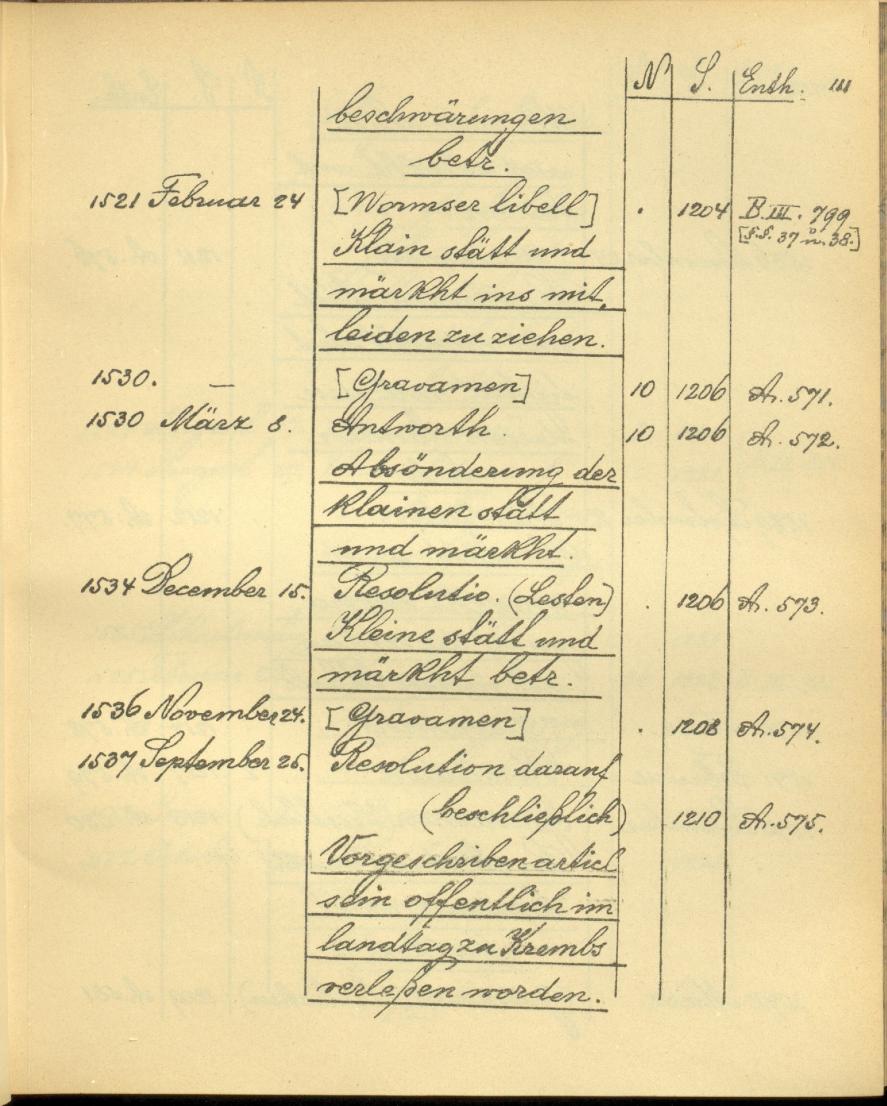 N S. Enth. III
beschwärungen
betr.
1521 Februar 24 [Wormser libell] . 1204 B.III. 799
[S.S. 37 u. 38.]
Klain stätt und
märkht ins mit,
leiden zu ziehen.
1530. — [Gravamen] 10 1206 A. 571.
1530 März 8. Antworth. 10 1206 A. 572.
Absönderung der
klainen stätt
und märkht.
1534 December 15. Resolutio. (Lesten) . 1206 A. 573.
Kleine stätt und
märkht betr.
1536 November 24. [Gravamen] . 1208 A. 574.
1537 September 26. Resolution darauf
(beschließlich) 1210 A. 575.
Vorgeschriben articl
sein offentlich im
landtag zu Krembs
verleßen worden.